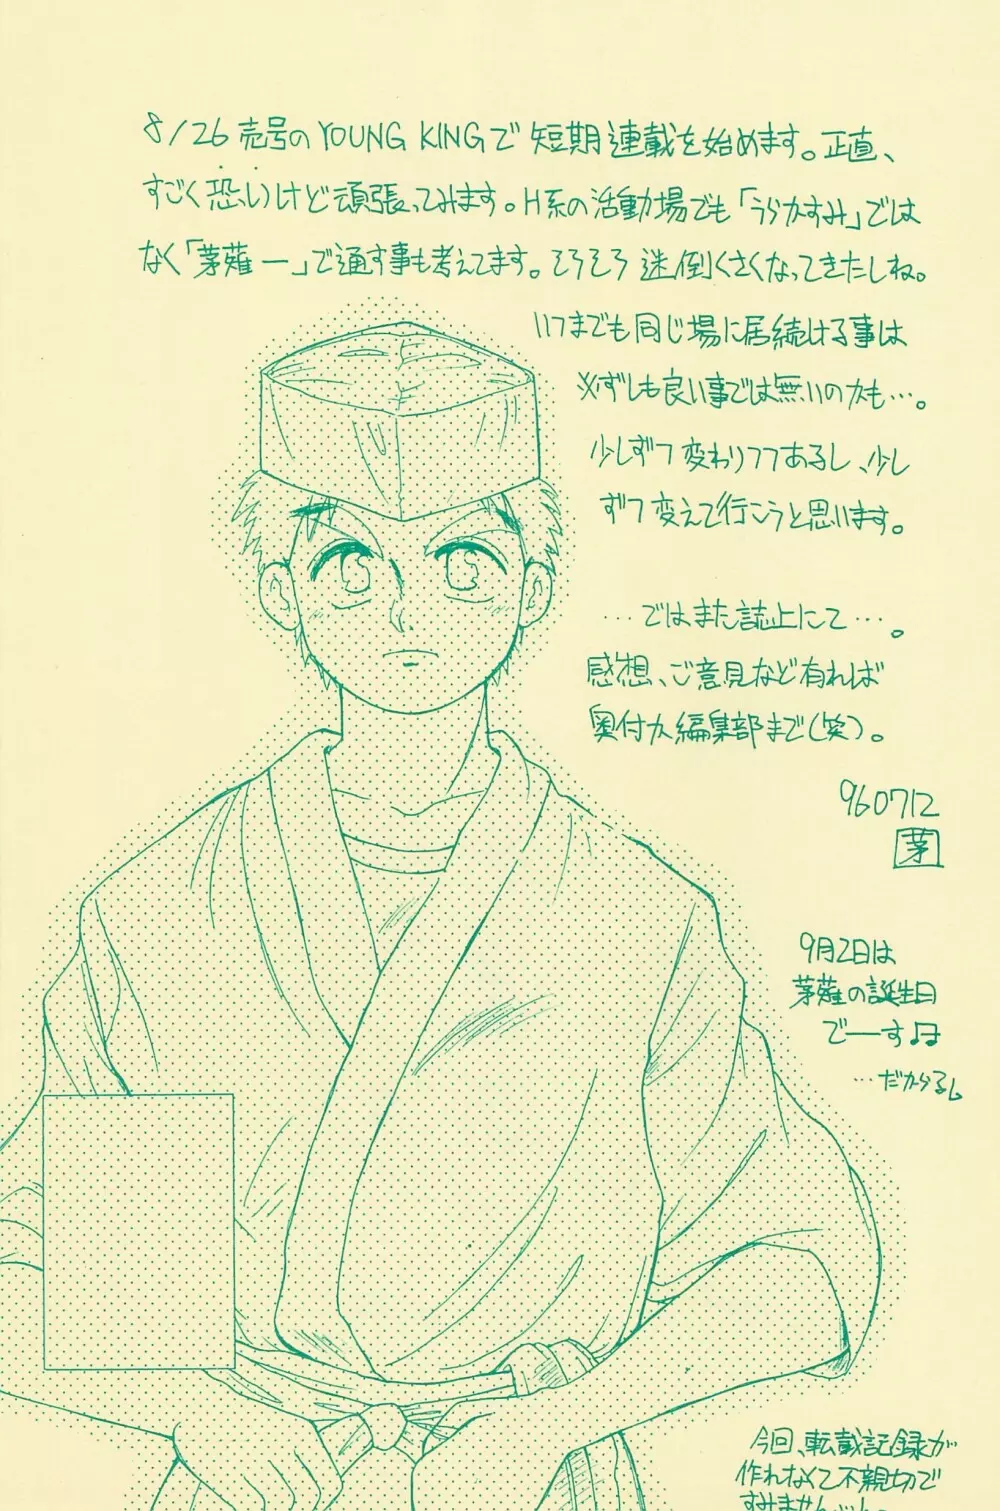 8/26売号のYOUNG KINGで短期連載を始めます。正直、
すごく恐いけど頑張ってみます。H系の活動場でも「うらかすみ」では
なく「茅薙一」で通す事も考えてます。そろそろ迷倒くさくなってきたしね。
いつまでも同じ場に居続ける事は
必ずしも良い事では無いのかも…。
少しずつ変わりつつあるし、少し
ずつ変えて行こうと思います。
…ではまた誌上にて…。
感想、ご意見など有れば
奥付か編集部まで(笑)。
960712
茅
9月2日は
茅薙の誕生日
でーす♫
…だからるし
今回、転載記録が
作れなくて不親切で
すみません